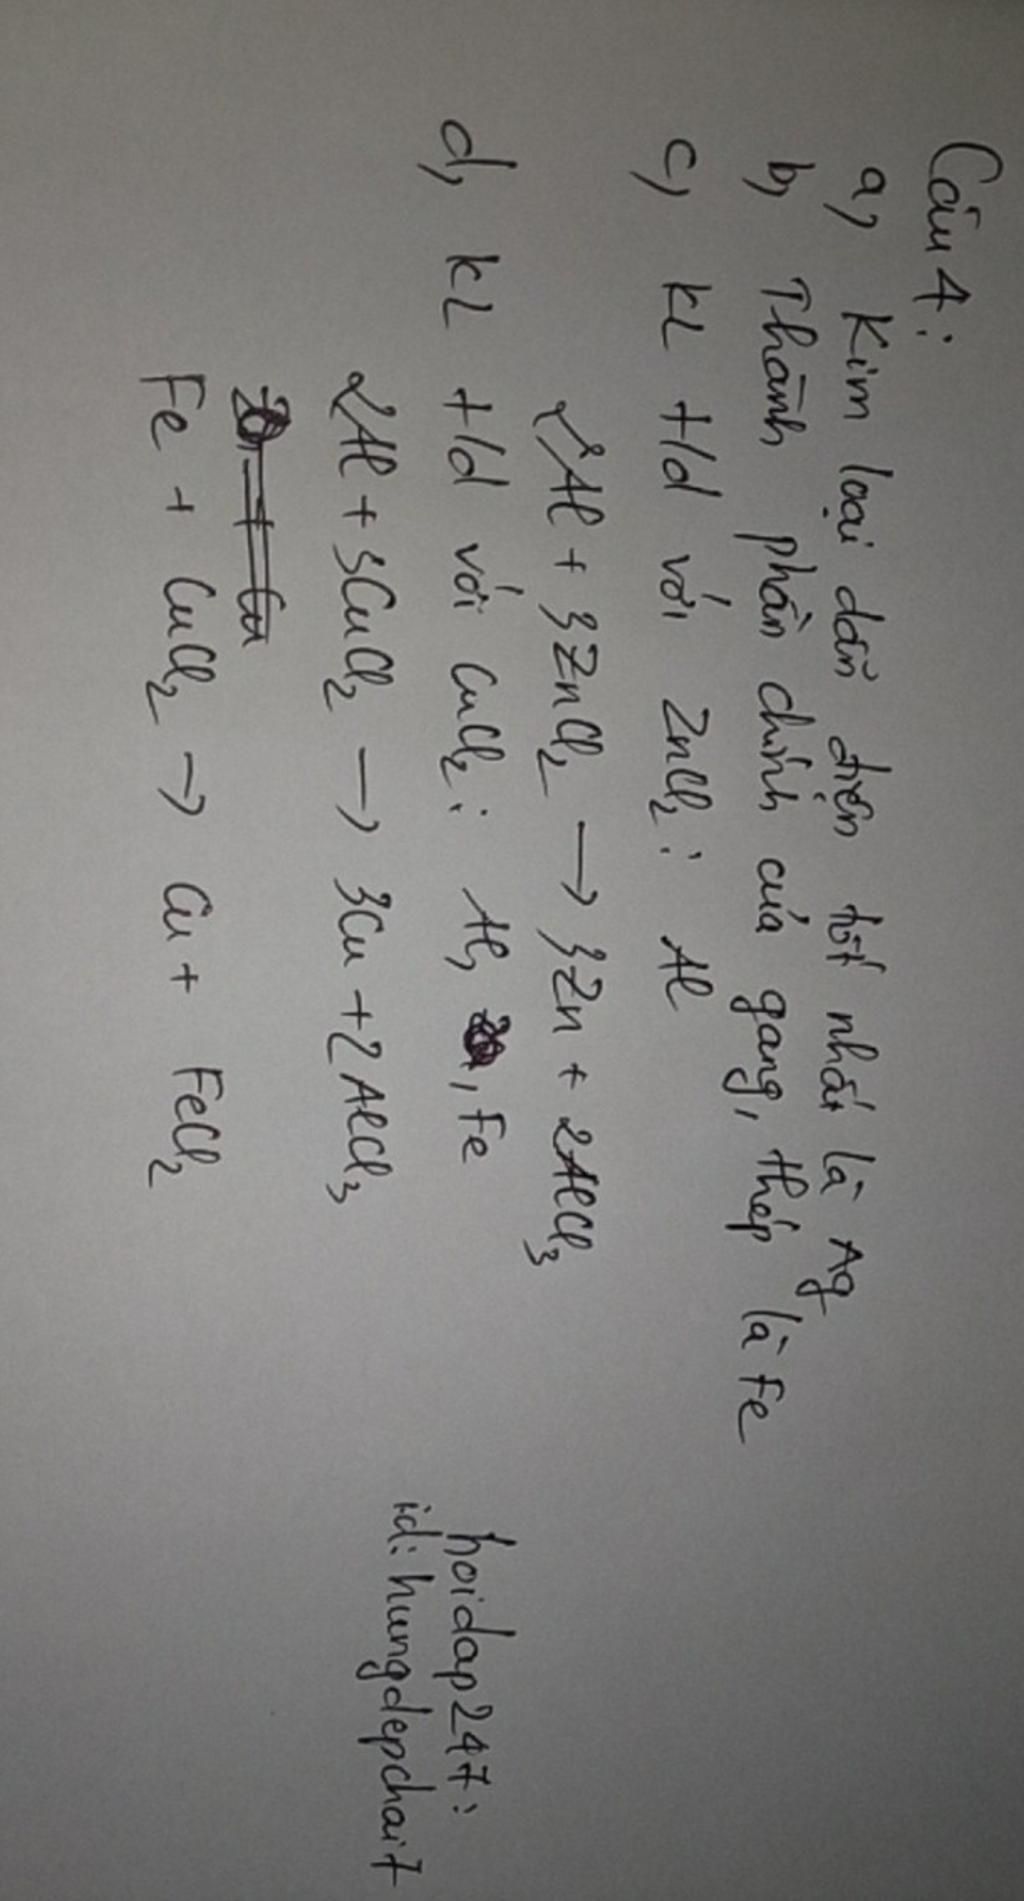 Câu 4:
a, Kim loại dẫn điện tốt nhất là Ag
b, Thành phần chính của gang, thép là Fe
c, KL t/d với ZnCl₂: Al
2Al + 3ZnCl₂ → 3Zn + 2AlCl₃
d, KL t/d với CuCl₂: Al, , Fe
2Al + 3CuCl₂ → 3Cu + 2AlCl₃
Fe + CuCl₂ → Cu + FeCl₂
hoidap247:
id: hungdepchai7